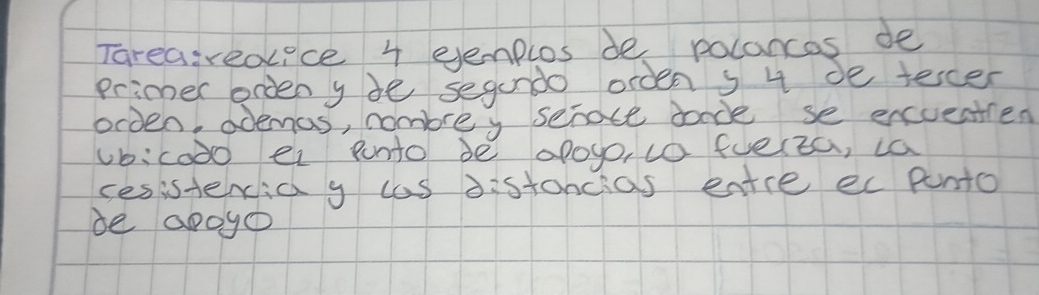 Tarea: realice 4 ejemplos de palancas de
primer orden y de segundo orden y 4 de tercer
orden. ademas, nombre y señale donde se encuentren
ubicado el punto de apoyo, la fuerza, la
resistencia y las distancias entre el punto
de apoyo